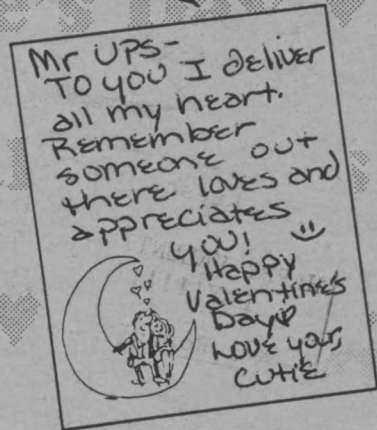 Mr UPS-
TO YOU I deliver
all my heart.
Remember
someone out
there loves and
appreciates
you!
Happy
Valentine's
Day
Love your,
Cutie